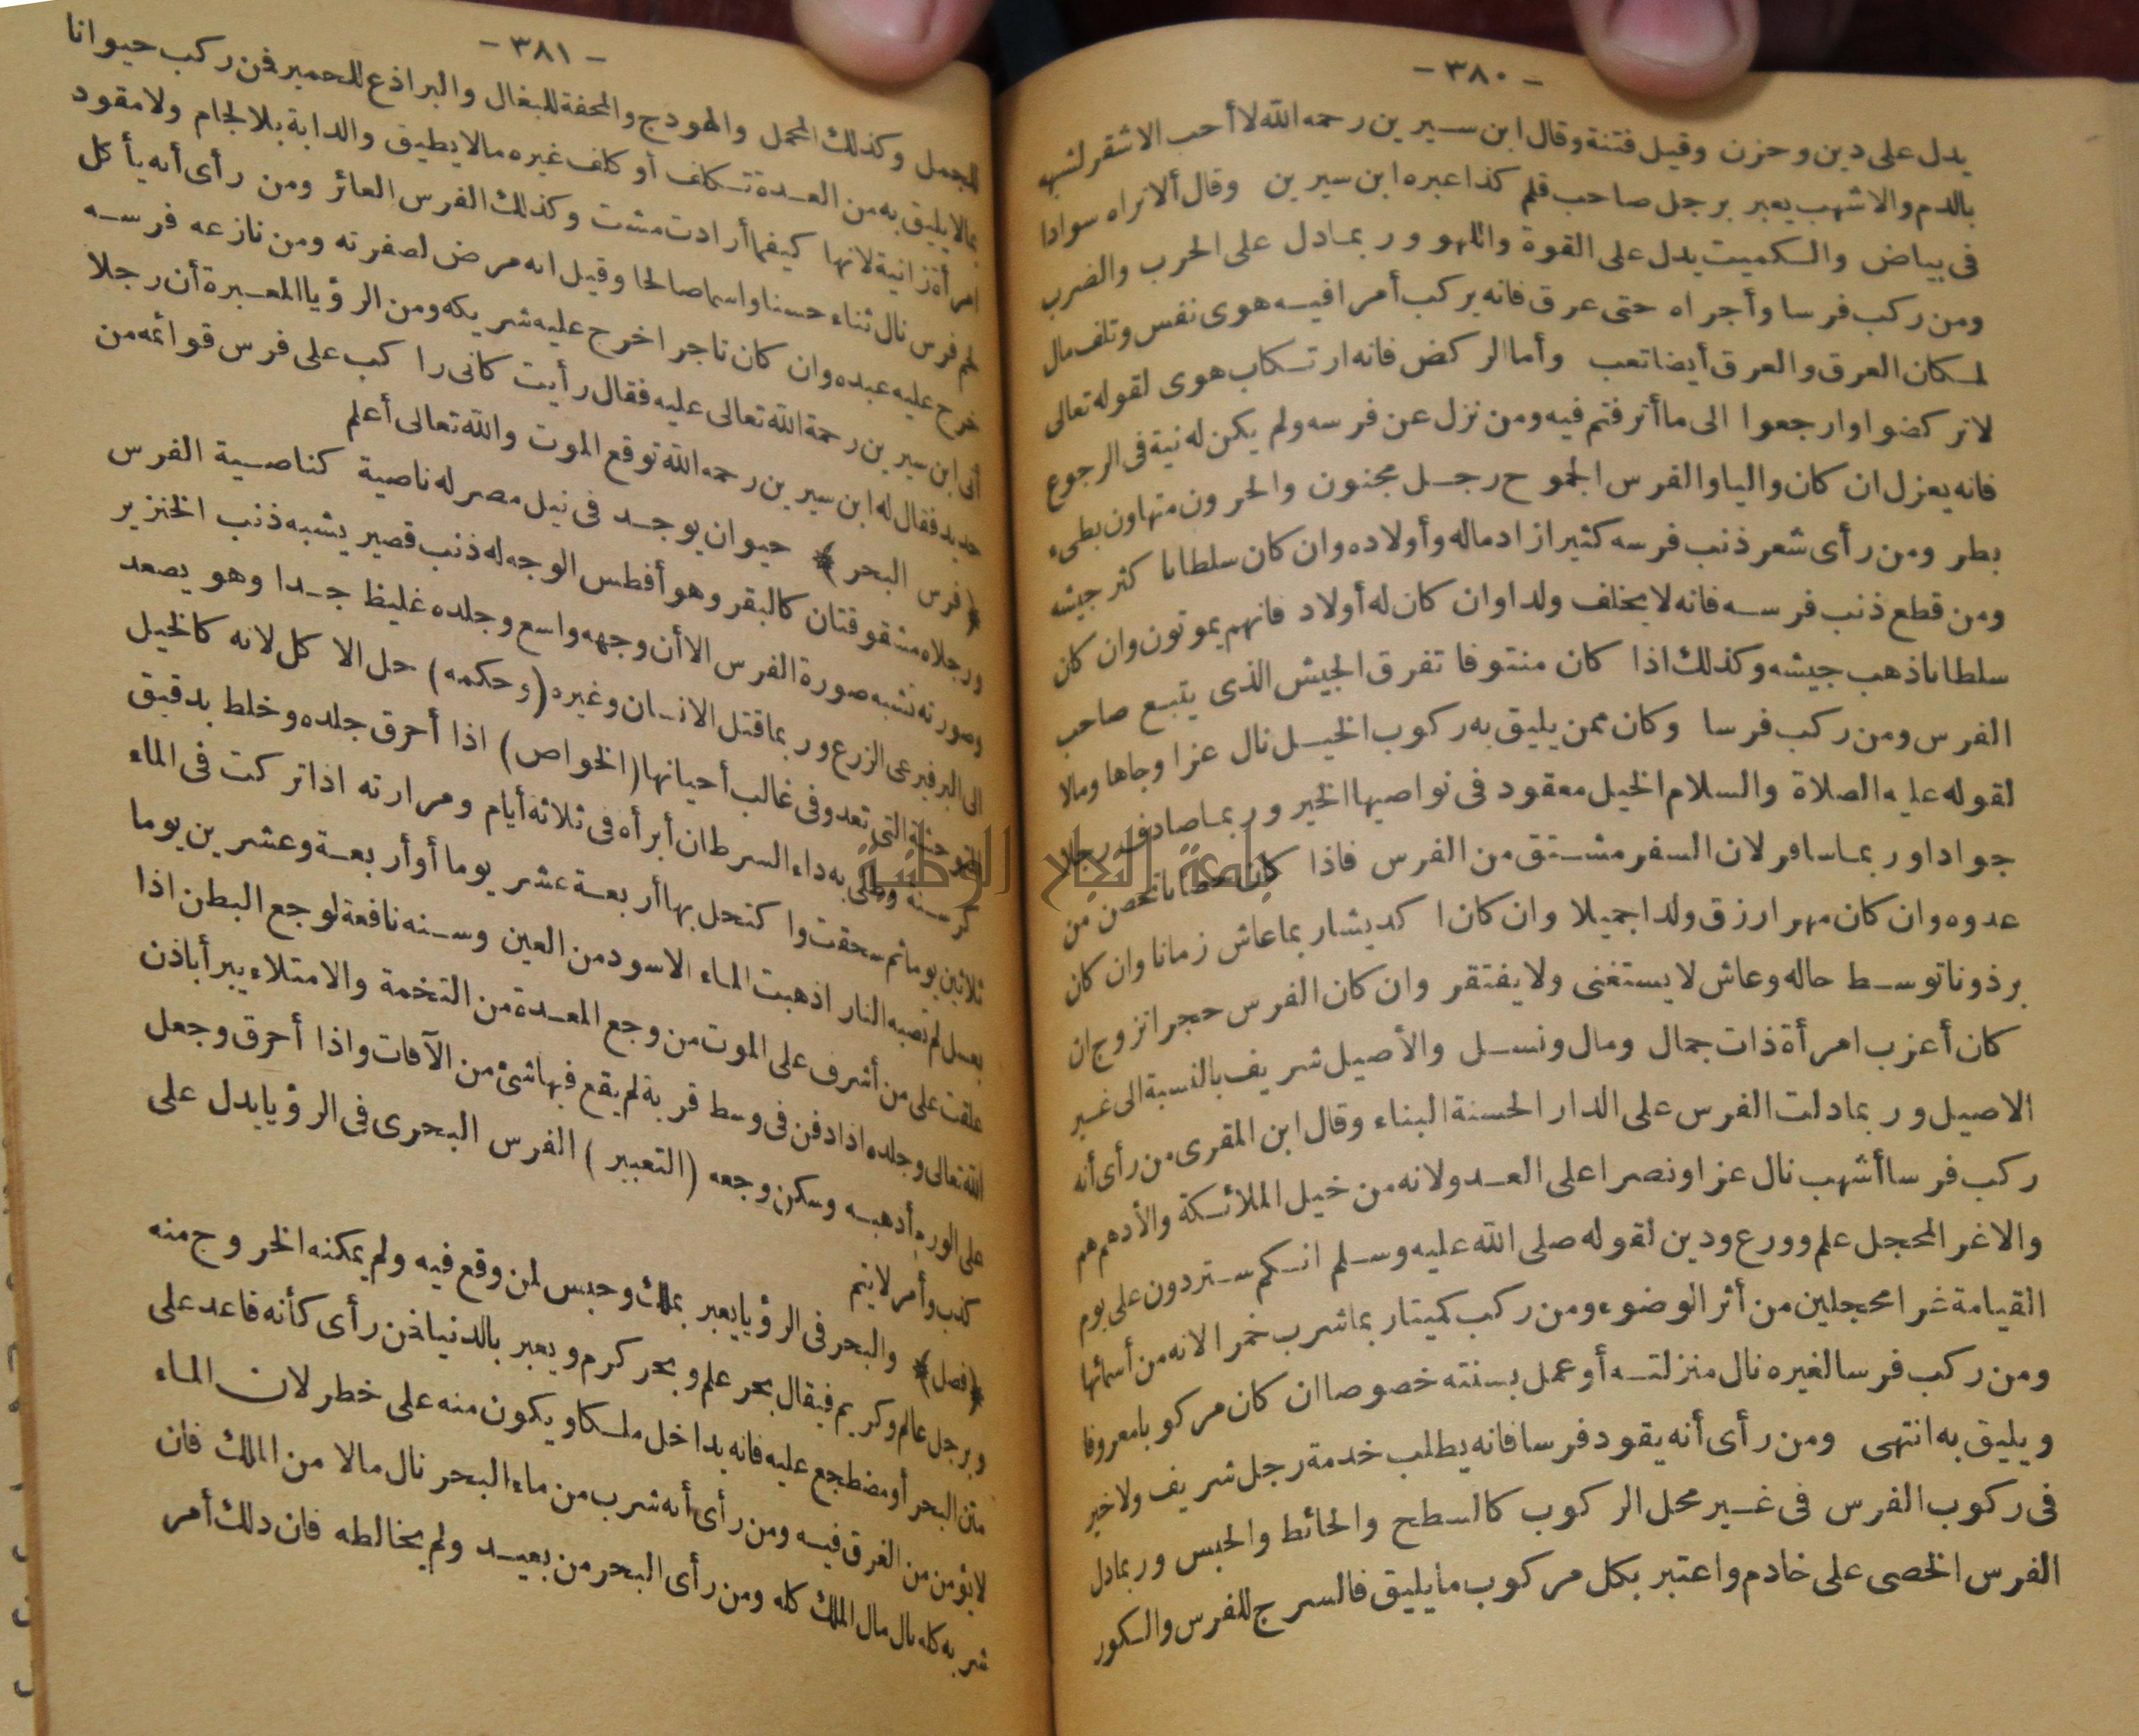 - ٣٨٠ -
يدل على دين وحزن وقيل فتنة وقال ابن سيرين رحمه الله لا أحب الاشقر لشبهه
بالدم والاشهب يعبر برجل صاحب قلم كذا عبره ابن سيرين وقال ألا تراه سوادا
فى بياض والكميت يدل على القوة واللهو وربما دل على الحرب والضرب
ومن ركب فرسا وأجراه حتى عرق فانه يركب أمرا فيه هوى نفس وتلف مال
لمكان العرق والعرق أيضا تعب وأما الركض فانه ارتكاب هوى لقوله تعالى
لا تركضوا وارجعوا الى ما أترفتم فيه ومن نزل عن فرسه ولم يكن له نية فى الرجوع
فانه يعزل ان كان واليا والفرس الجموح رجل مجنون والحرون متهاون بطىء
بطر ومن رأى شعر ذنب فرسه كثيرا زاد ماله وأولاده وان كان سلطانا كثر جيشه
ومن قطع ذنب فرسه فانه لا يخلف ولدا وان كان له أولاد فانهم يموتون وان كان
سلطانا ذهب جيشه وكذلك اذا كان منتوفا تفرق الجيش الذى يتبع صاحب
الفرس ومن ركب فرسا وكان ممن يليق به ركوب الخيل نال عزا وجاها ومالا
لقوله عليه الصلاة والسلام الخيل معقود فى نواصيها الخير وربما صادف رجلا
جوادا وربما سافر لان السفر مشتق من الفرس فاذا كان حصانا تحصن من
عدوه وان كان مهرا رزق ولدا جميلا وان كان اكديشا ربما عاش زمانا وان كان
برذونا توسط حاله وعاش لا يستغنى ولا يفتقر وان كان الفرس حجرا تزوج ان
كان أعزب امرأة ذات جمال ومال ونسل والأصيل شريف بالنسبة الى غير
الاصيل وربما دلت الفرس على الدار الحسنة البناء وقال ابن المقرى من رأى أنه
ركب فرسا أشهب نال عزا ونصرا على العدو لانه من خيل الملائكة والأدهم هم
والاغر المحجل علم وورع ودين لقوله صلى الله عليه وسلم انكم ستردون على يوم
القيامة غرا محجلين من أثر الوضوء ومن ركب كميتا ربما شرب خمرا لانه من أسمائها
ومن ركب فرسا لغيره نال منزلته أو عمل بسنته خصوصا ان كان مركوبا معروفا
ويليق به انتهى ومن رأى أنه يقود فرسا فانه يطلب خدمة رجل شريف ولا خير
فى ركوب الفرس فى غير محل الركوب كالسطح والحائط والحبس وربما دل
الفرس الخصى على خادم واعتبر بكل مركوب ما يليق فالسرج للفرس والكور
- ٣٨١ -
للجمل وكذلك المحمل والهودج والمحفة للبغال والبراذع للحمير فمن ركب حيوانا
بما لا يليق به من العدة تكلف أو كلف غيره ما لا يطيق والدابة بلا لجام ولا مقود
امرأة زانية لانها كيفما أرادت مشت وكذلك الفرس العائر ومن رأى أنه يأكل
لحم فرس نال ثناء حسنا واسما صالحا وقيل انه مرض لصفرته ومن نازعه فرسه
خرج عليه عبده وان كان تاجرا خرج عليه شريكه ومن الرؤيا المعبرة أن رجلا
أتى ابن سيرين رحمة الله تعالى عليه فقال رأيت كانى راكب على فرس قوائمه من
حديد فقال له ابن سيرين رحمه الله توقع الموت والله تعالى أعلم
﴿فرس البحر﴾ حيوان يوجد فى نيل مصر له ناصية كناصية الفرس
ورجلاه مشقوقتان كالبقر وهو أفطس الوجه له ذنب قصير يشبه ذنب الخنزير
وصورته تشبه صورة الفرس الا أن وجهه واسع وجلده غليظ جدا وهو يصعد
الى البر فيرعى الزرع وربما قتل الانسان وغيره (وحكمه) حل الاكل لانه كالخيل
المتوحشة التى تعدو فى غالب أحيانها (الخواص) اذا أحرق جلده وخلط بدقيق
كرسنة وطلى به داء السرطان أبرأه فى ثلاثة أيام ومرارته اذا تركت فى الماء
ثلاثين يوما ثم سحقت واكتحل بها أربعة عشر يوما أو أربعة وعشرين يوما
بعسل لم تصبه النار اذهبت الماء الاسود من العين وسنه نافعة لوجع البطن اذا
علقت على من أشرف على الموت من وجع المعدة من التخمة والامتلاء يبرأ باذن
الله تعالى وجلده اذا دفن فى وسط قرية لم يقع فيها شئ من الآفات واذا أحرق وجعل
على الورم أذهبه وسكن وجعه (التعبير) الفرس البحرى فى الرؤيا يدل على
كذب وأمر لا يتم
﴿فصل﴾ والبحر فى الرؤيا يعبر بملك وحبس لمن وقع فيه ولم يمكنه الخروج منه
وبرجل عالم وكريم فيقال بحر علم وبحر كرم ويعبر بالدنيا فمن رأى كأنه قاعد على
متن البحر أو مضطجع عليه فانه يداخل ملكا ويكون منه على خطر لان الماء
لا يؤمن من الغرق فيه ومن رأى أنه شرب من ماء البحر نال مالا من الملك فان
شربه كله نال مال الملك كله ومن رأى البحر من بعيد ولم يخالطه فان ذلك أمر
جامعة النجاح الوطنية